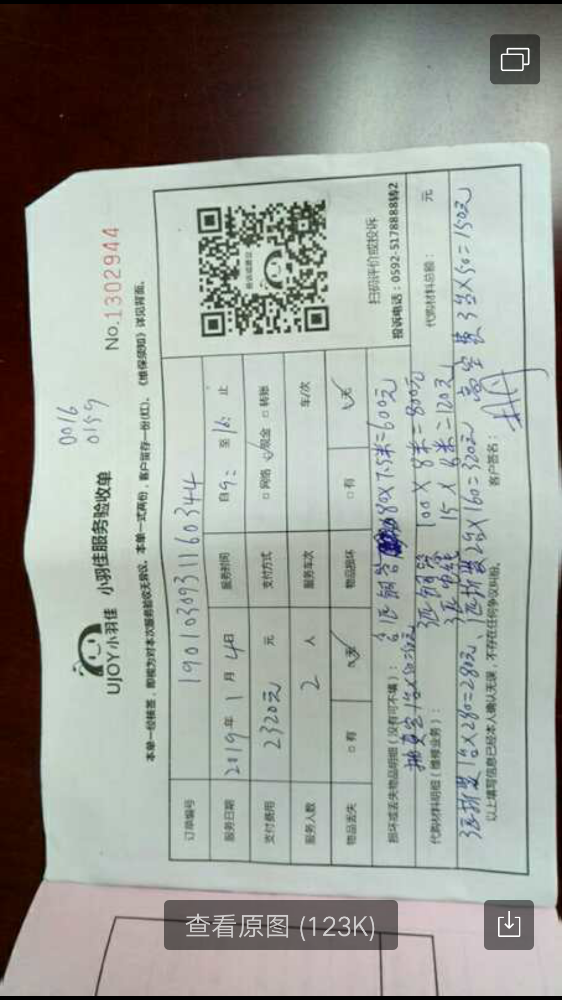 0016
0159
UJOY小羽佳 小羽佳服务验收单
No.1302944
本单一经核签，即视为对本次服务验收无异议。本单一式两份，客户留存一份(红)。《维保须知》详见背面。
订单编号 190103093116 0344
服务日期 2019年1月4日 服务时间 自9: 至16: 止
支付费用 2320元 支付方式 □网络 ☑现金 □转账
服务人数 2人 服务车次 车/次
物品丢失 □有 ☑无 物品损坏 □有 ☑无
扫码评价或投诉
投诉电话：0592-5178888转2
损坏或丢失物品明细（没有可不填）：
80X7.5米=600元
代购材料明细（维修业务）：
3匹铜管 100X8米=800元
15X8米=120元
代购材料总额： 元
3匹拆装1台X280=280元、1匹拆装2台X160=320元 高空费3台X50=150元
以上填写信息已经本人确认无误，不存在任何争议纠纷。 客户签名：
查看原图 (123K)